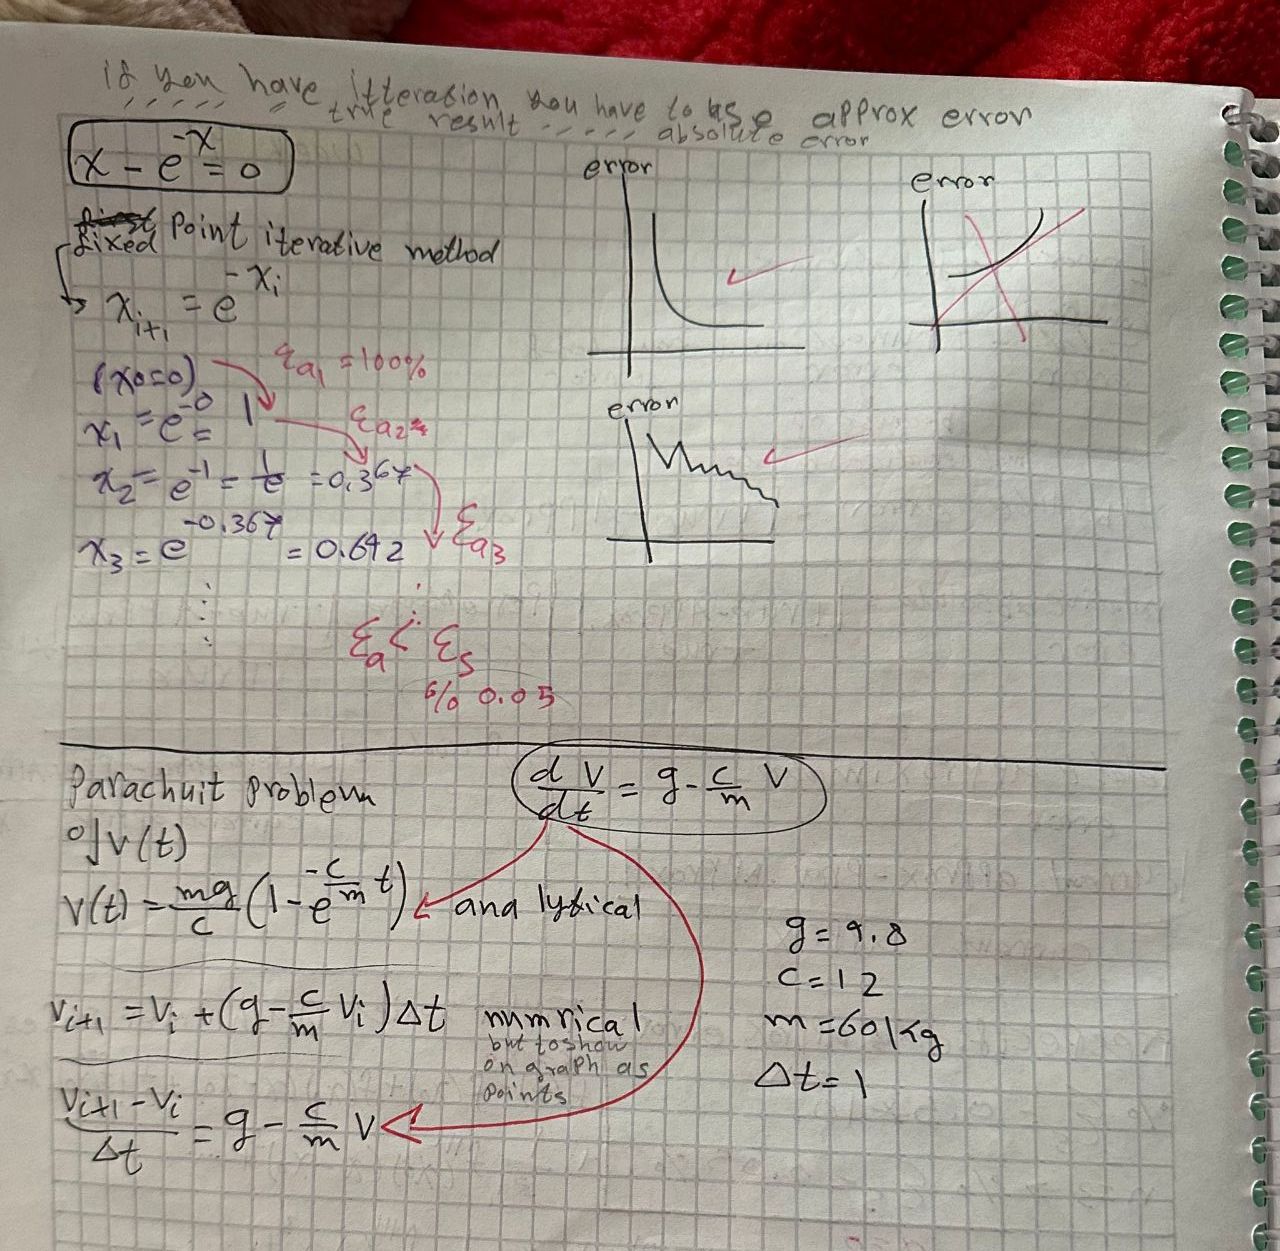 if you have itteration you have to use approx error
,, ,, ,, ,, ,, = true result ,, ,, ,, absolute error
x - e^-x = 0
fixed point iterative method
x_i+1 = e^-x_i
(x0=0)
ξa1 = 100%
x1 = e^-0 = 1
ξa2=
x2 = e^-1 = 1/e = 0.367
ξa3
x3 = e^-0.367 = 0.642
ξa < ξs
% 0.05
error
error
error
Parachuit problem
dv/dt = g - c/m v
v(t)
v(t) = mg/c (1 - e^-c/m t) analytical
v_i+1 = v_i + (g - c/m v_i) Δt numrical
but to show
on graph as
points
v_i+1 - v_i / Δt = g - c/m v
g = 9.8
c = 12
m = 60 kg
Δt = 1